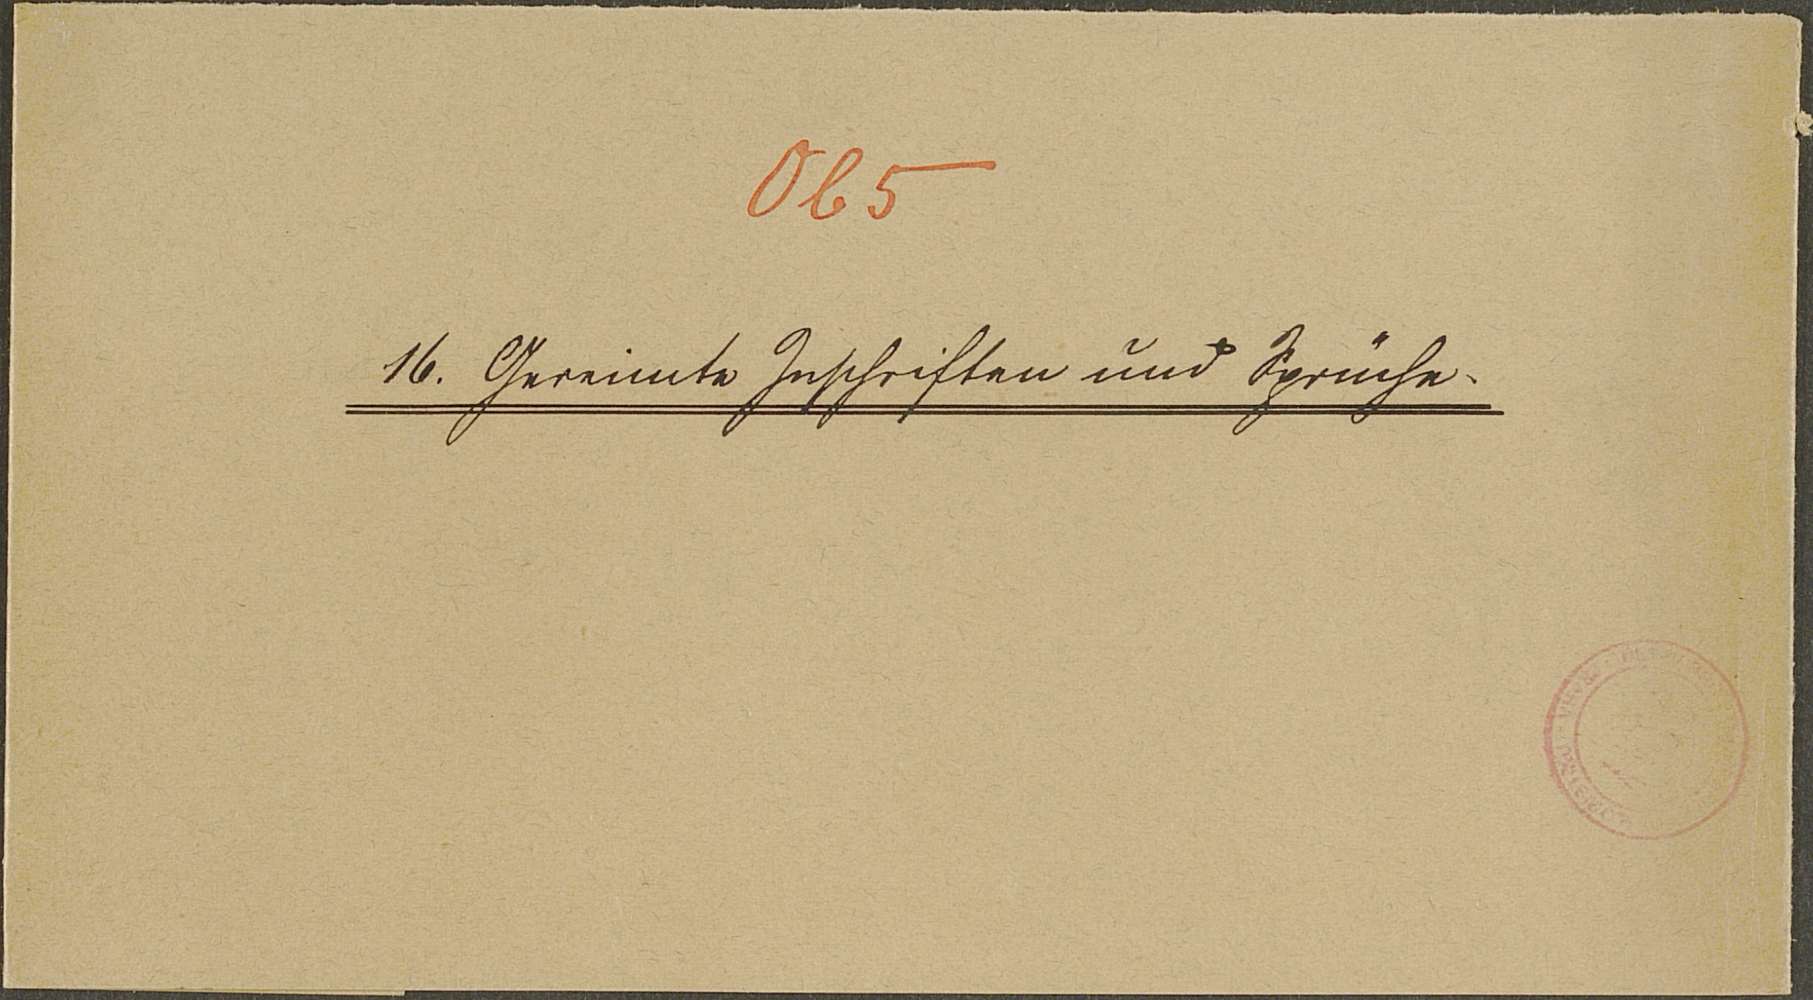 Ob 5
16. Gereimte Inschriften und Sprüche.